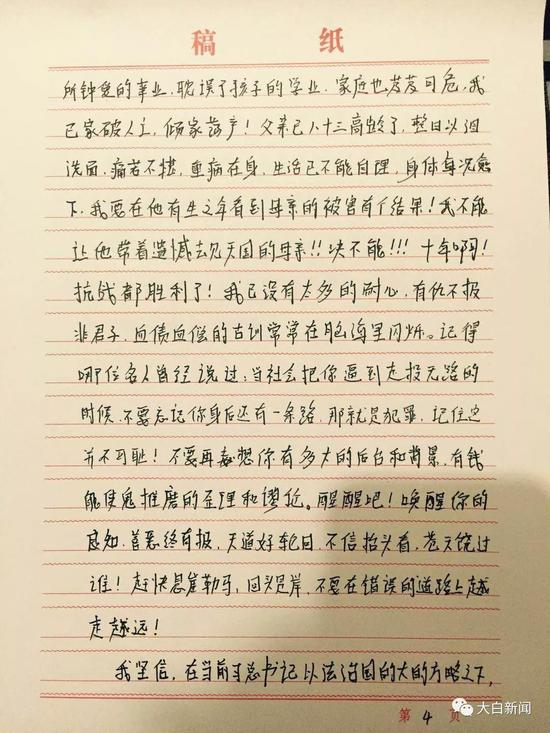 稿 纸
所钟爱的事业,耽误了孩子的学业,家庭也岌岌可危,我
已家破人亡,倾家荡产!父亲已八十三高龄了,整日以泪
洗面,痛苦不堪,重病在身,生活已不能自理,身体每况愈
下,我要在他有生之年看到母亲的被害有个结果!我不能
让他带着遗憾去见天国的母亲!!决不能!!!十年啊!
抗战都胜利了!我已没有太多的耐心,有仇不报
非君子,血债血偿的古训常常在脑海里闪烁。记得
哪位名人曾经说过:当社会把你逼到走投无路的
时候,不要忘记你身后还有一条路,那就是犯罪,记住这
并不可耻!不要再妄想你有多大的后台和背景,有钱
能使鬼推磨的歪理和谬论。醒醒吧!唤醒你的
良知,善恶终有报,天道好轮回,不信抬头看,苍天饶过
谁!赶快悬崖勒马,回头是岸,不要在错误的道路上越
走越远!
我坚信,在当前习总书记以法治国的大的方略之下,
第 4 页
大白新闻